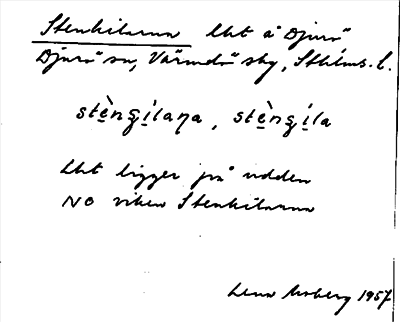 Stenkilarna Lht å Djurö
Djurö sn, Värmdö skg, Sthlms l.
stèngílaṇa, stèngíla
Lht ligger på udden
NO viken Stenkilarna
Lena Moberg 1957